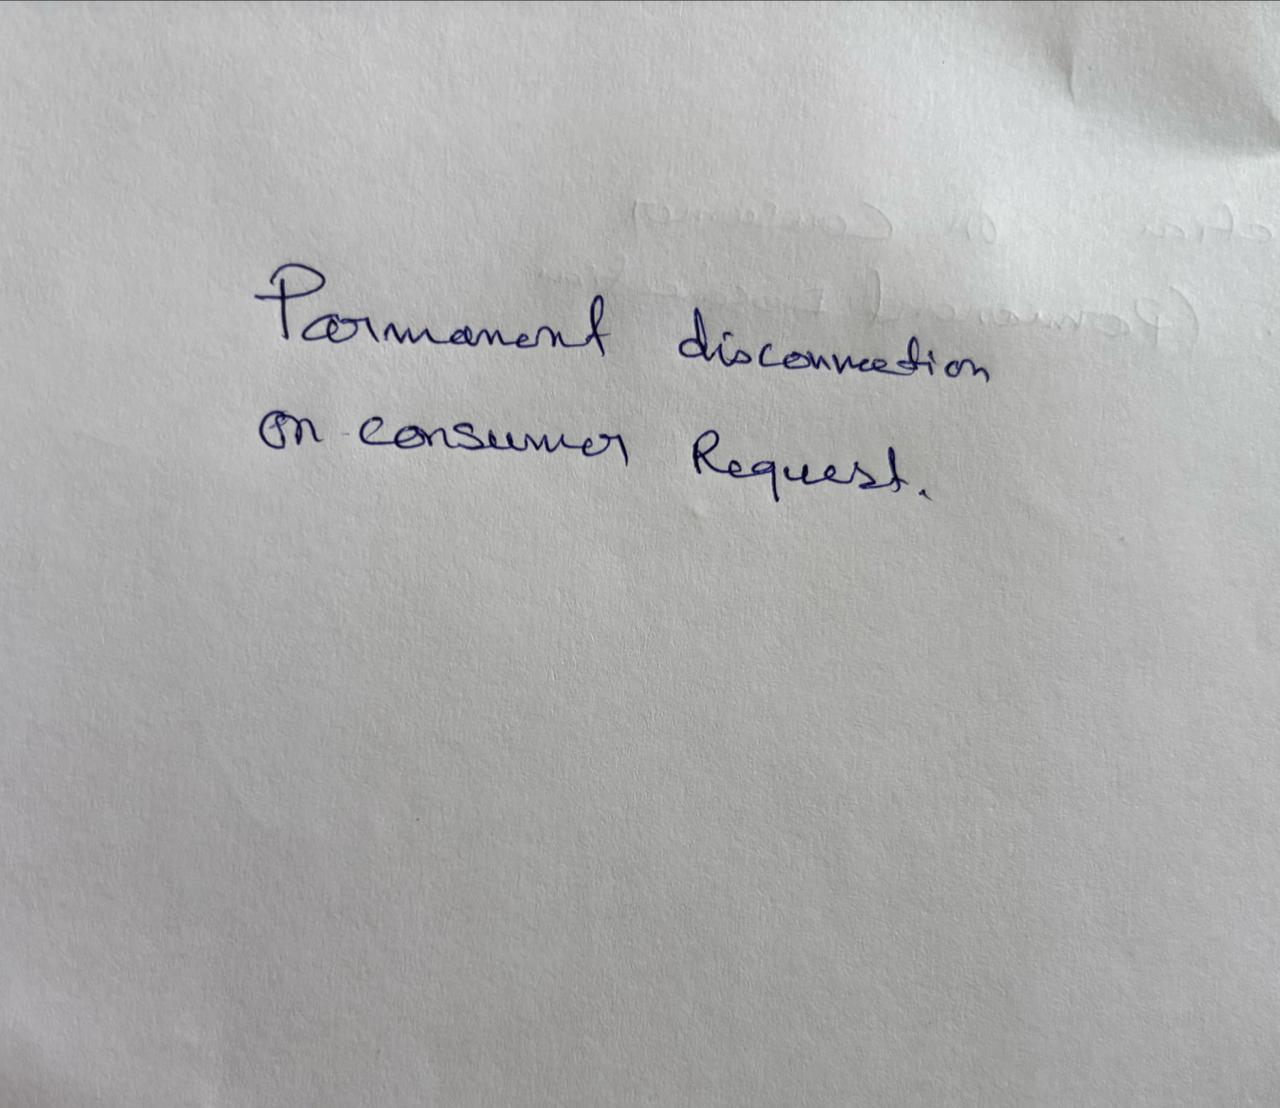 Parmanent disconnection
on consumer Request.